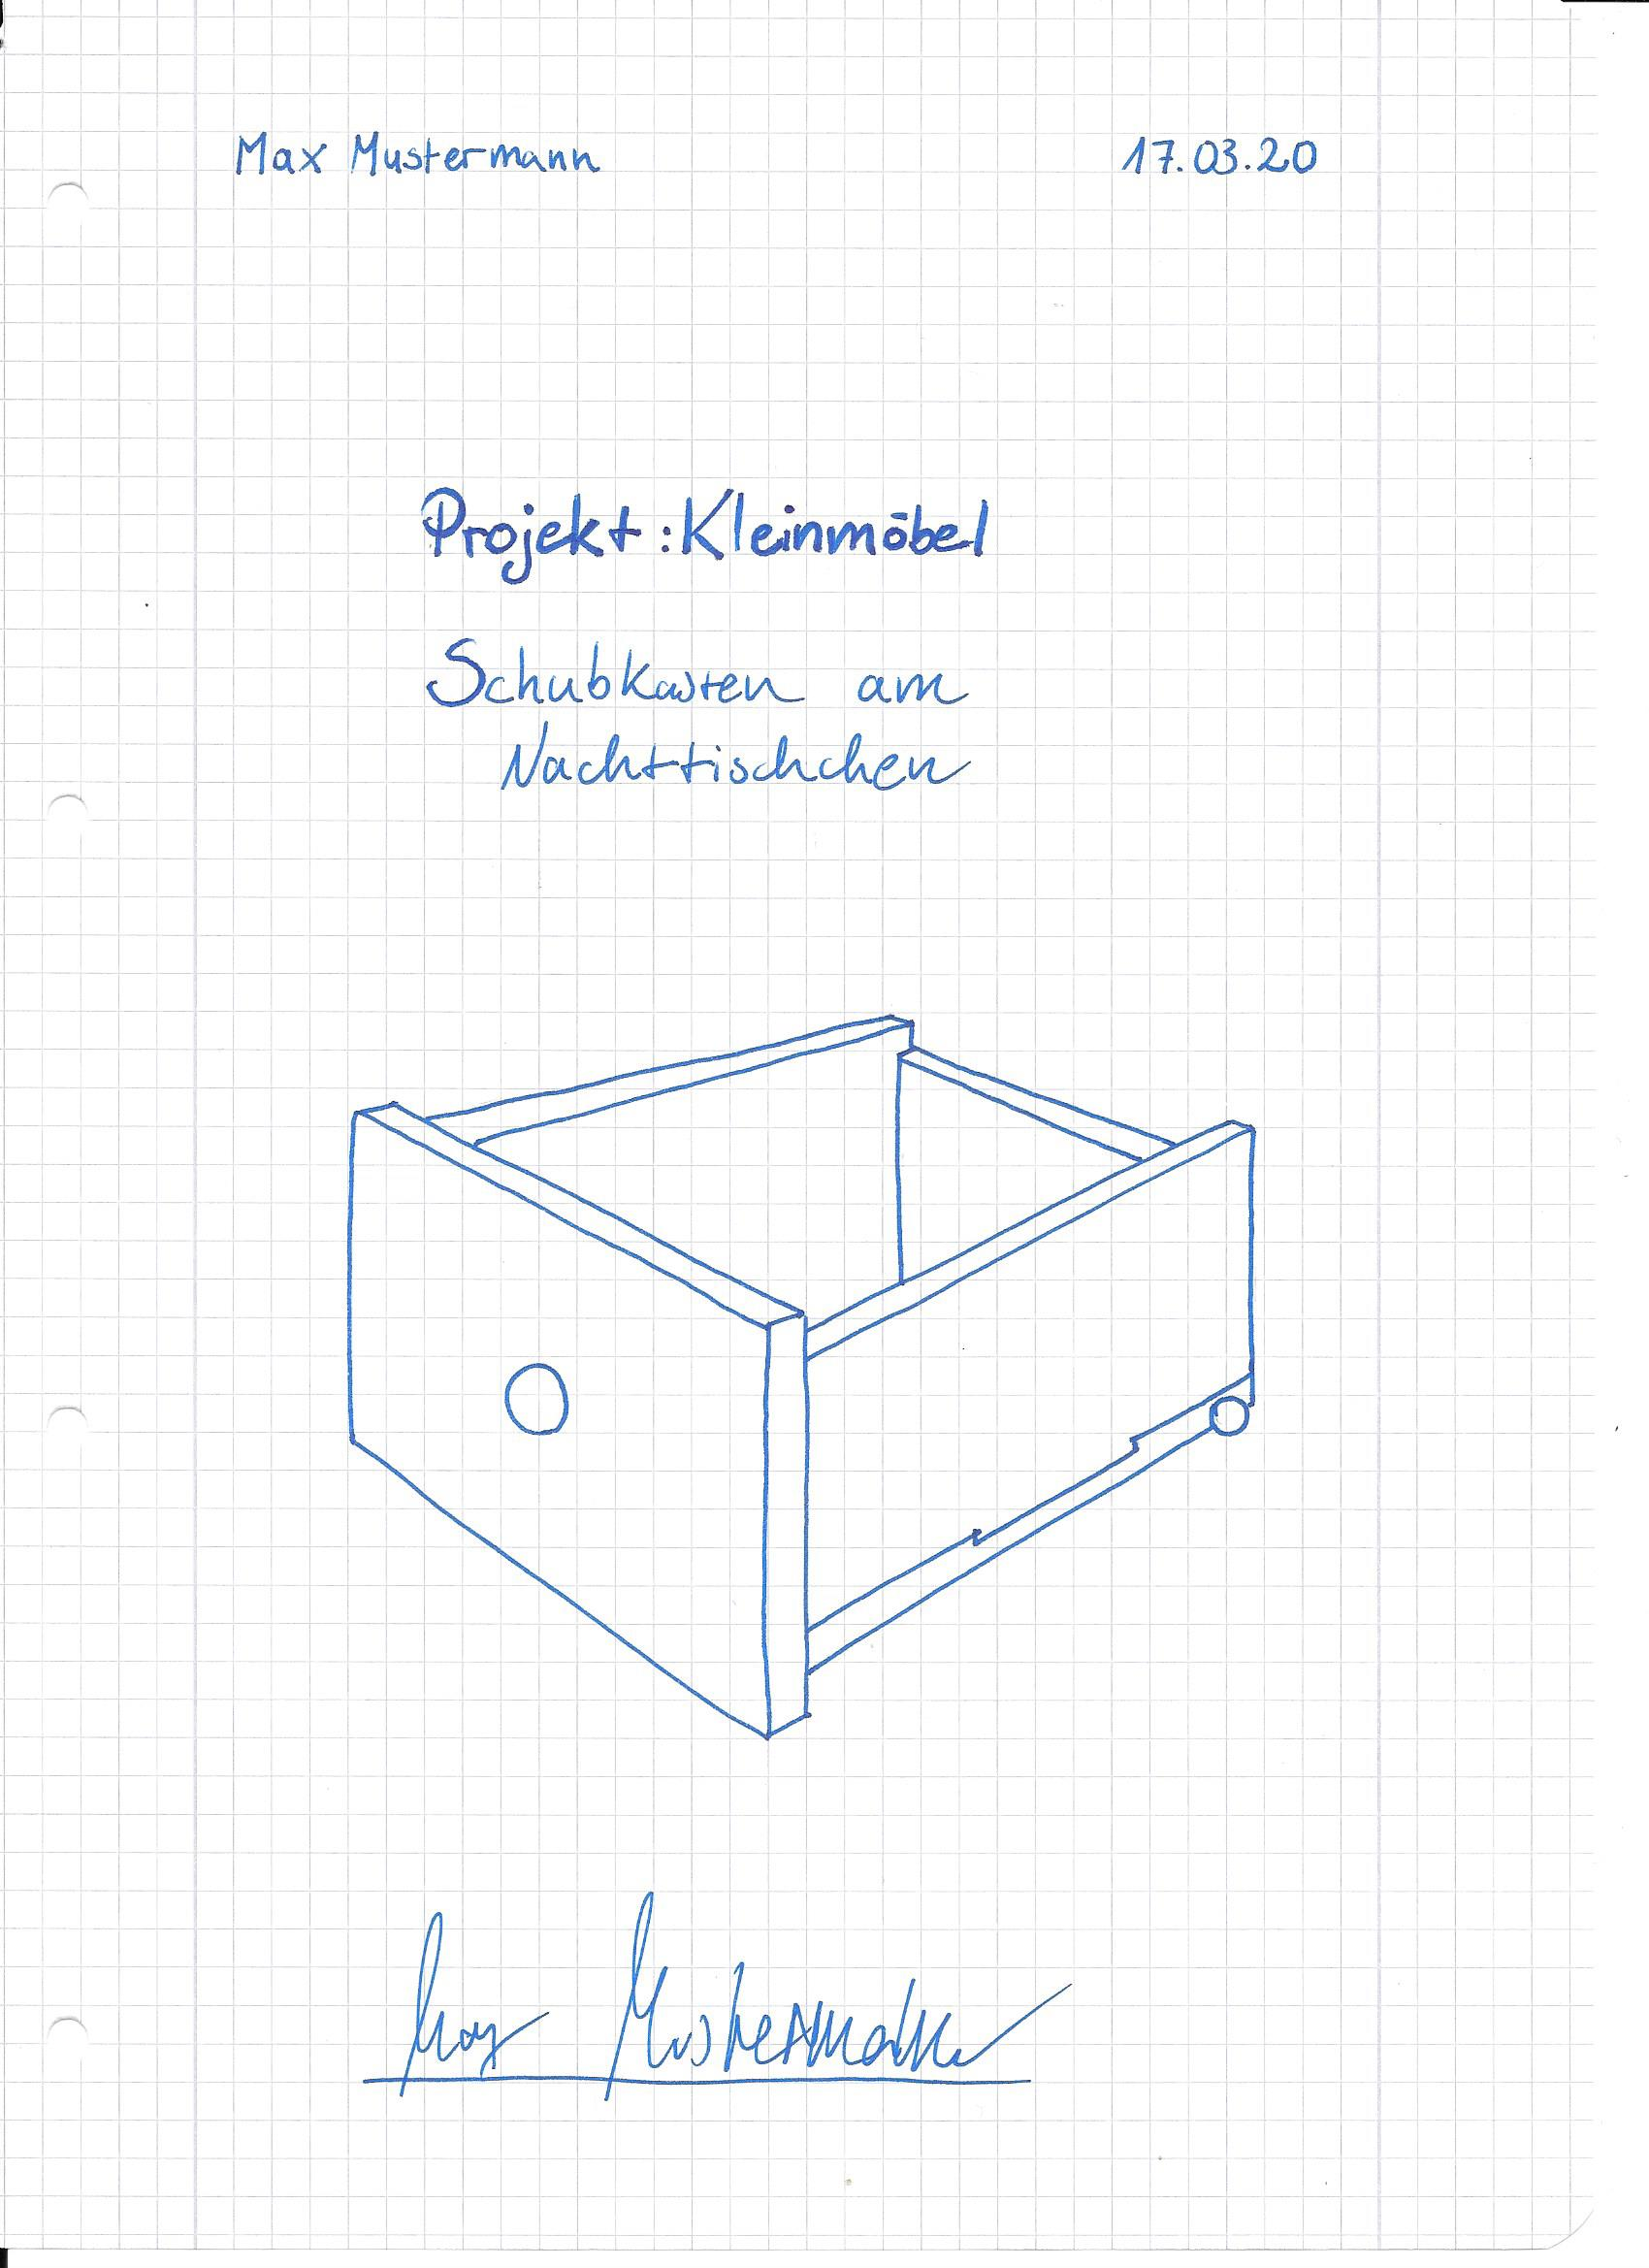 Max Mustermann 17.03.20
Projekt: Kleinmöbel
Schubkasten am
Nachttischchen
Max Mustermann